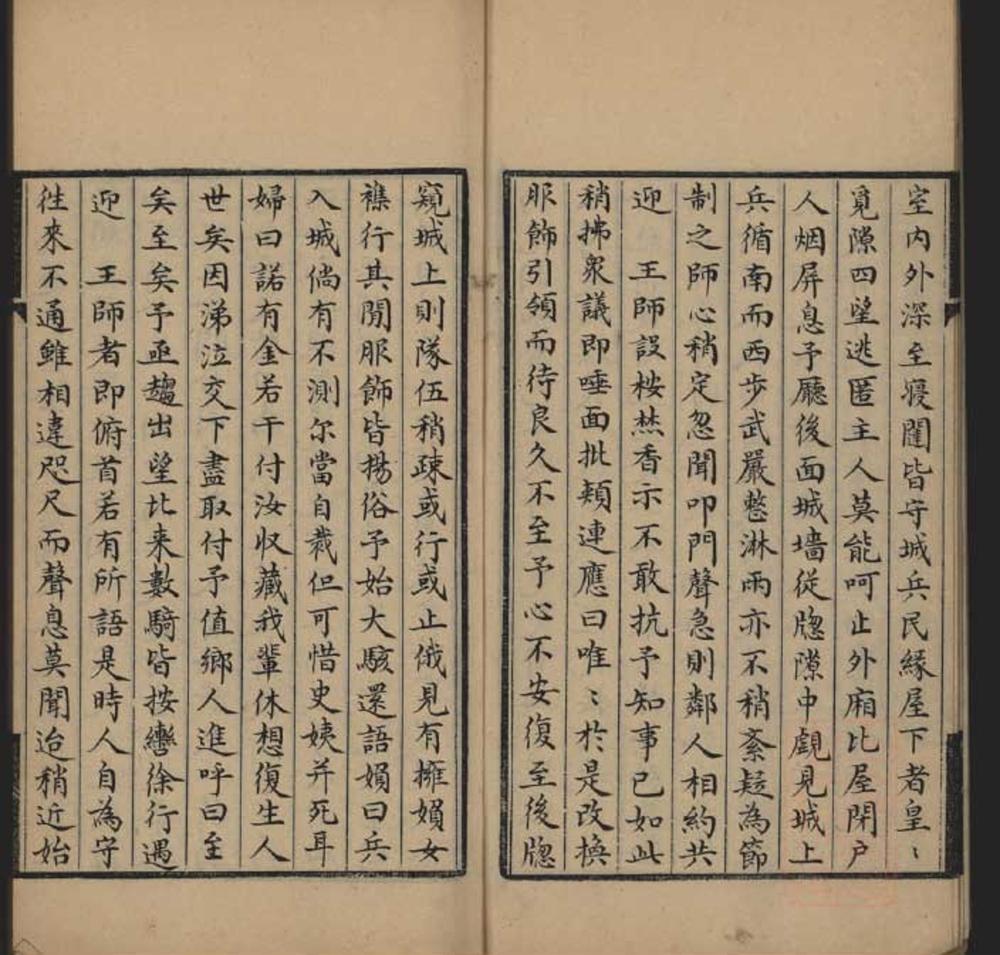 室内外深至寢闈皆守城兵民緣屋下者皇〻
覓隙四望逃匿主人莫能呵止外廂比屋閉户
人烟屏息予廳後面城墻從牕隙中覷見城上
兵循南而西步武嚴整淋雨亦不稍紊疑為節
制之師心稍定忽聞叩門聲急則鄰人相約共
迎　王師設桉焚香示不敢抗予知事已如此
稍拂衆議即唾面批頰連應曰唯〻於是改換
服飾引領而待良久不至予心不安復至後牕
窺城上則隊伍稍疎或行或止俄見有擁婦女
襍行其閒服飾皆揚俗予始大駭還語婦曰兵
入城倘有不測尔當自裁但可惜史姨并死耳
婦曰諾有金若干付汝収藏我輩休想復生人
世矣因涕泣交下盡取付予值鄉人進呼曰至
矣至矣予亟趨出望比来數騎皆按轡徐行遇
迎　王師者即俯首若有所語是時人自為守
徃來不通雖相違咫尺而聲息莫聞迨稍近始